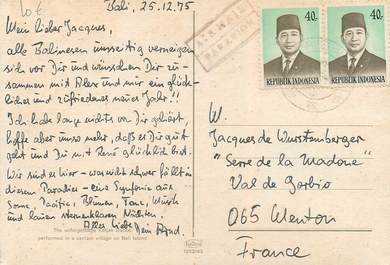 Bali, 25.12.75
Mein lieber Jacques,
alle Balinesen umseitig verneigen
sich vor Dir und wünschen Dir zu-
sammen mit Alex und mir ein glück-
liches und zufriedenes neues Jahr!!
Ich habe lange nichts von Dir gehört,
hoffe aber umso mehr, daß es Dir gut
geht und Du mit René glücklich bist.
Wie sind es hier – was nicht schwer fällt in
diesem Paradies – eine Symfonie aus
Sonne, Pacific, Blumen, Tanz, Musik
und lauen sternenklaren Nächten.
Alles Liebe
Dein
The unforgettable Kecak Dance
performed in a certain village on Bali Island
1252/63
40,-
REPUBLIK INDONESIA
40,-
REPUBLIK INDONESIA
M.
Jacques de Wurstemberger
"Serre de la Madone"
Val de Gorbio
065 Menton
France